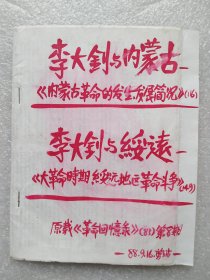 李大钊与内蒙古—
《内蒙古革命的发生发展简况》(16)
李大钊与綏遠—
《大革命时期綏远地区革命斗争》(49)
原载《革命回憶录》(81)
—88.9.16.